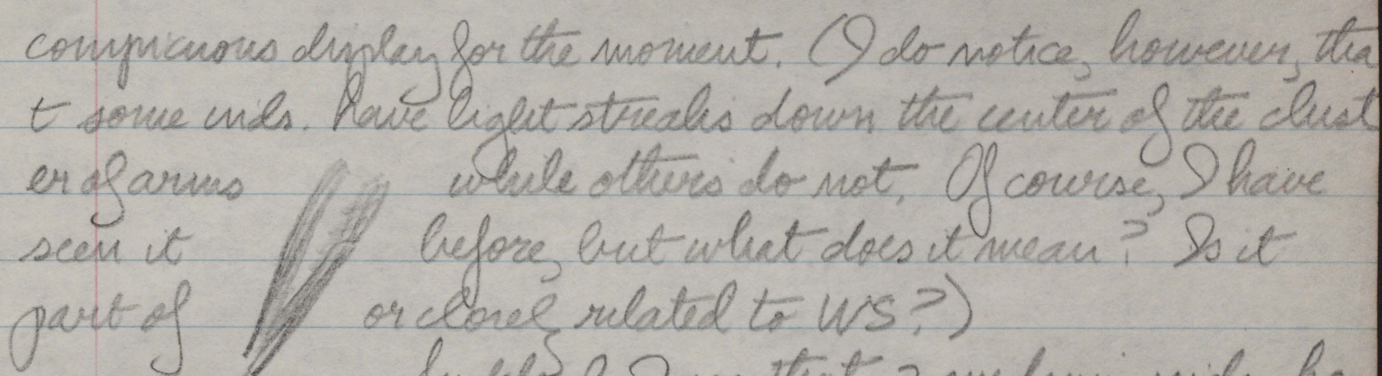 conspicuous display for the moment. (I do notice, however, tha
t some inds. have light streaks down the center of the clust
er of arms while others do not. Of course, I have
seen it before, but what does it mean? Is it
part of or closely related to WS?)
that